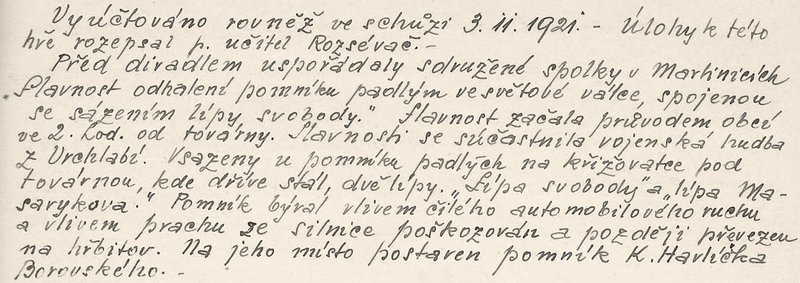 Vyúčtováno rovněž ve schůzi 3. ii. 1921. - Úlohy k této
hře rozepsal p. učitel Rozsévač. -
Před divadlem uspořádaly sdružené spolky v Martinicích
slavnost odhalení pomníku padlým ve světové válce, spojenou
se sázením lípy „svobody." Slavnost začala průvodem obcí
ve 2. hod. od továrny. Slavnosti se súčastnila vojenská hudba
z Vrchlabí. Vsazeny u pomníku padlých na křižovatce pod
továrnou, kde dříve stál, dvě lípy. „Lípa svobody" a „lípa Ma-
sarykova." Pomník býval vlivem čilého automobilového ruchu
a vlivem prachu ze silnice poškozován a později převezen
na hřbitov. Na jeho místo postaven pomník K. Havlíčka
Borovského. -